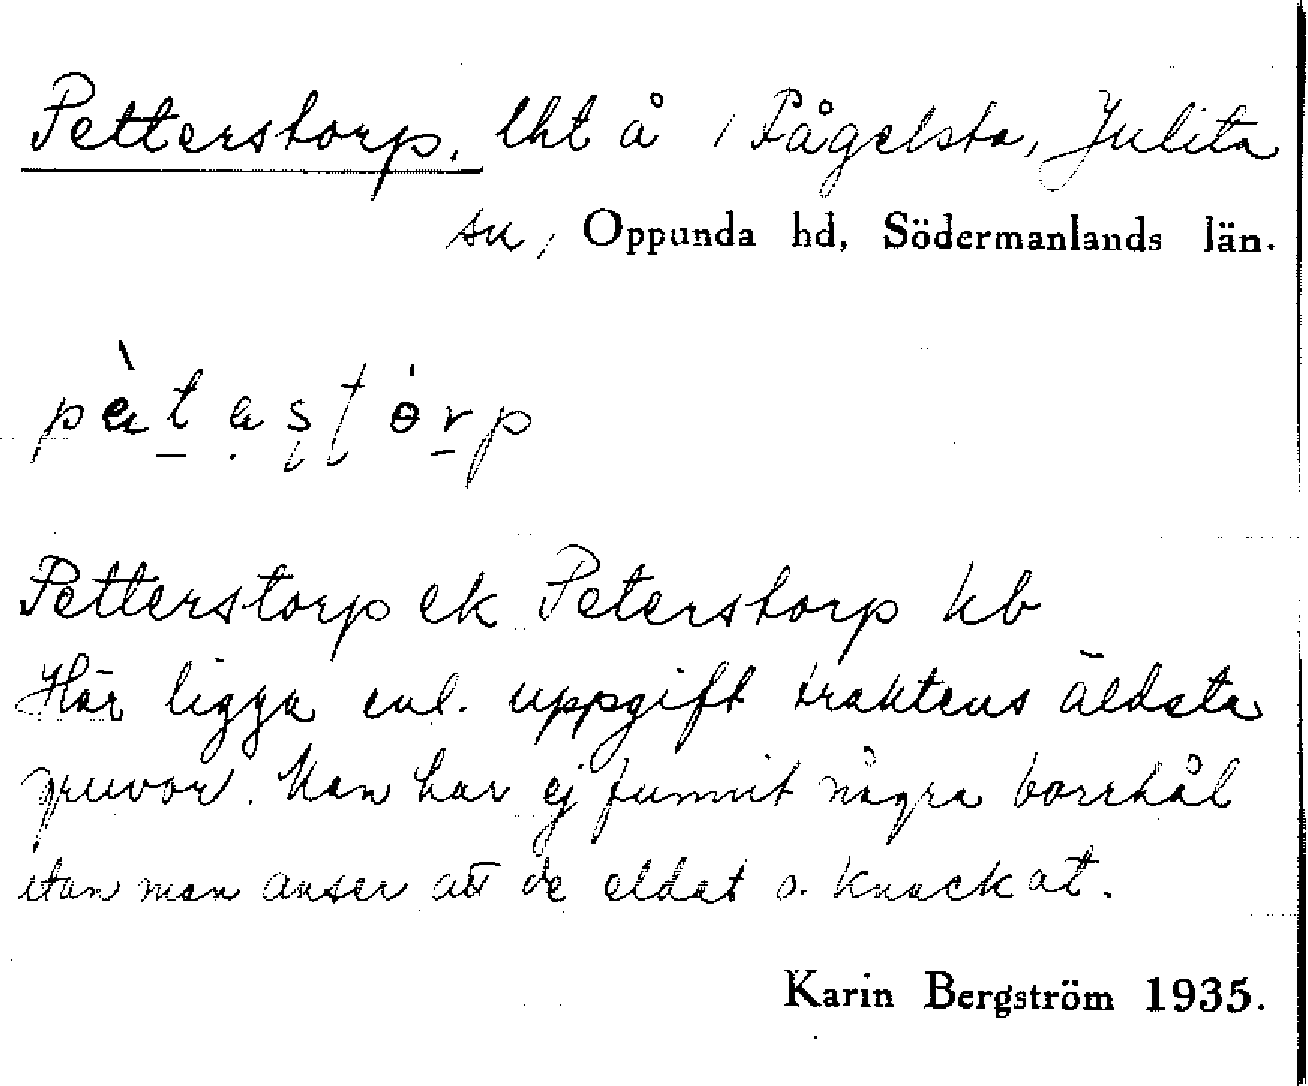 Petterstorp, lht å / Fågelsta, Julita
sn, Oppunda hd, Södermanlands län.
Petterstorp ek Peterstorp kb
Här ligga enl. uppgift traktens äldsta
gruvor. Man har ej funnit några borrhål
utan man anser att de eldat o. knackat.
Karin Bergström 1935.